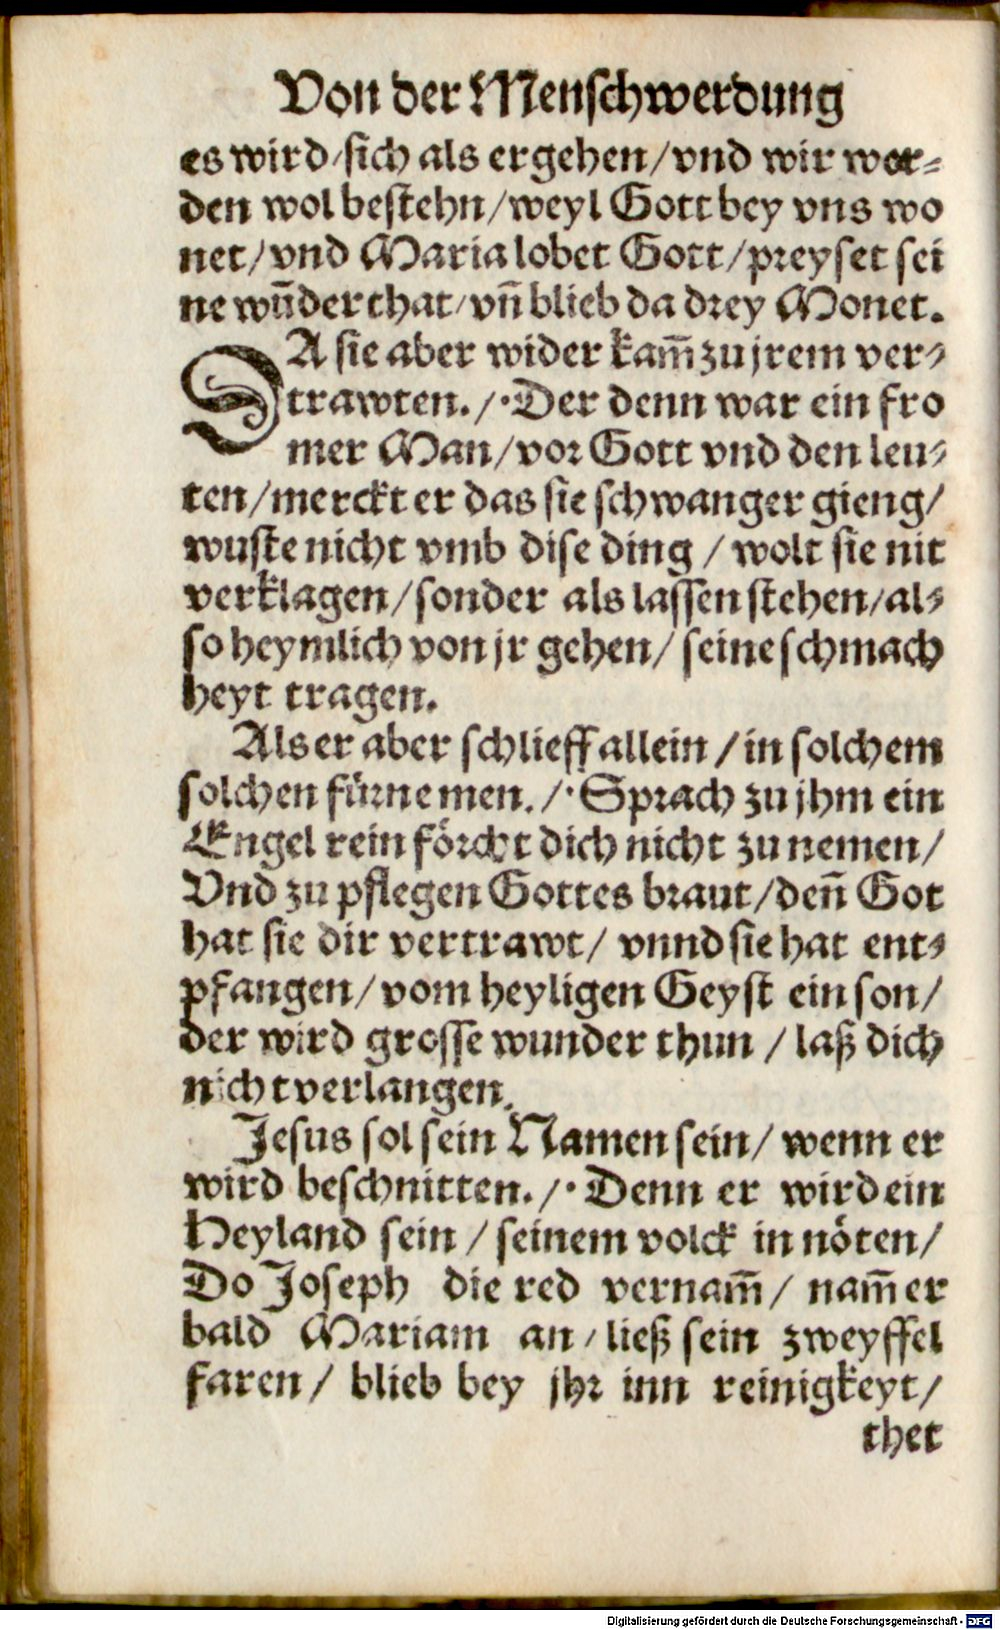 Von der Menschwerdung
es wird / sich als ergehen / vnd wir wer-
den wol bestehn / weyl Gott bey vns wo
net / vnd Maria lobet Gott / preyset sei
ne wūderthat / vn̄ blieb da drey Monet.
DA sie aber wider kam̄ zu jrem ver-
trawten. /· Der denn war ein fro
mer Man / vor Gott vnd den leu-
ten / merckt er das sie schwanger gieng /
wuste nicht vmb dise ding / wolt sie nit
verklagen / sonder als lassen stehen / al-
so heymlich von jr gehen / seine schmach
heyt tragen.
Als er aber schlieff allein / in solchem
solchen fürnemen. /· Sprach zu jhm ein
Engel rein förcht dich nicht zu nemen /
Vnd zu pflegen Gottes braut / den̄ Got
hat sie dir vertrawt / vnnd sie hat ent-
pfangen / vom heyligen Geyst ein son /
der wird grosse wunder thun / laß dich
nicht verlangen.
Jesus sol sein Namen sein / wenn er
wird beschnitten. /· Denn er wird ein
Heyland sein / seinem volck in nöten /
Do Joseph die red vernam̄ / nam̄ er
bald Mariam an / ließ sein zweyffel
faren / blieb bey jhr inn reinigkeyt /
thet
Digitalisierung gefördert durch die Deutsche Forschungsgemeinschaft - DFG